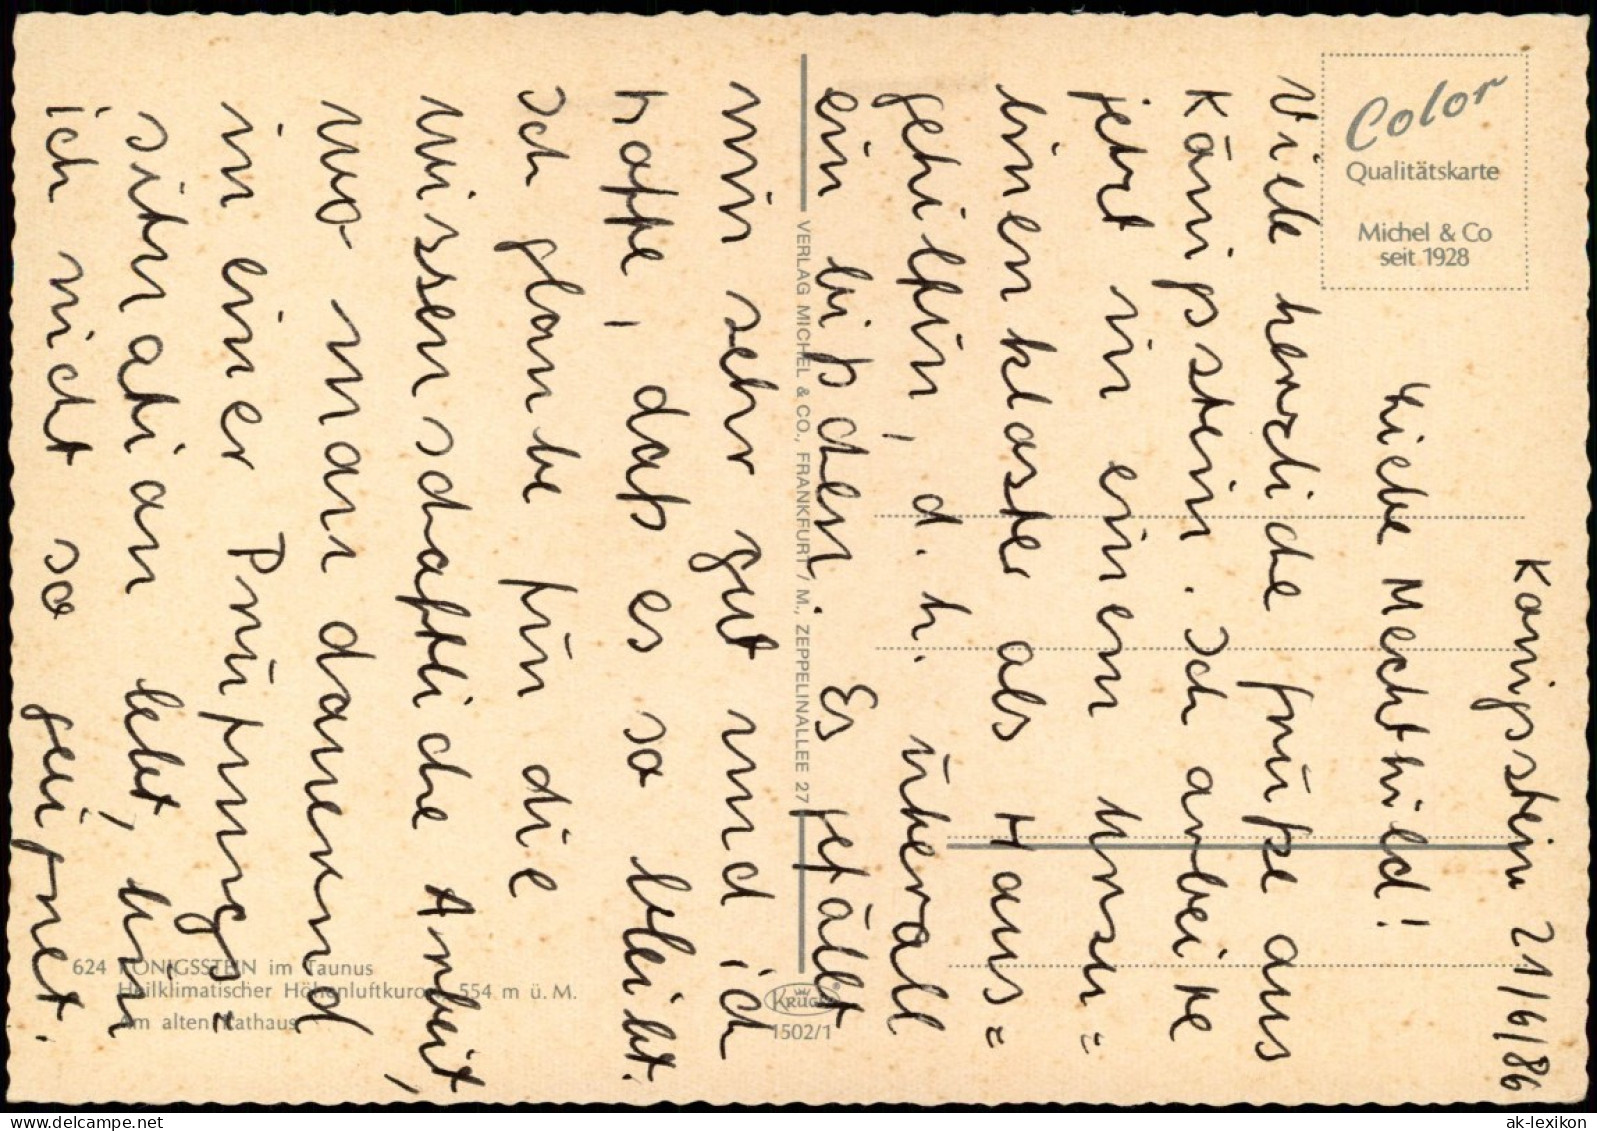 Königsstein 21/6/86
Liebe Mechthild!
Viele herzliche Grüße aus
Königsstein. Ich arbeite
jetzt in einem Ursu=
linenkloster als Haus=
gehilfin, d. h. überall
ein bißchen. Es gefällt
mir sehr gut und ich
hoffe, daß es so bleibt.
Ich glaube für die
wissenschaftliche Arbeit,
wo man dauernd
in einer Prüfungs=
situation lebt, bin
ich nicht so geeignet.
Color
Qualitätskarte
Michel & Co
seit 1928
VERLAG MICHEL & CO., FRANKFURT / M., ZEPPELINALLEE 27
624 KÖNIGSSTEIN im Taunus
Heilklimatischer Höhenluftkurort, 554 m ü. M.
Am alten Rathaus
KRÜGER
1502/1
ak-lexikon